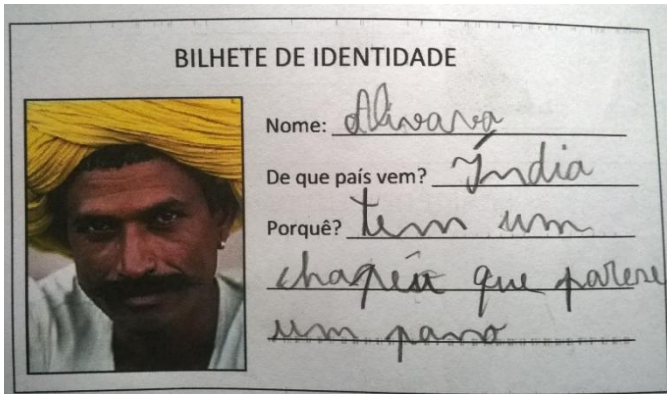 BILHETE DE IDENTIDADE
Nome: Alivara
De que país vem? Índia
Porquê? tem um
chapéu que parece
um pano